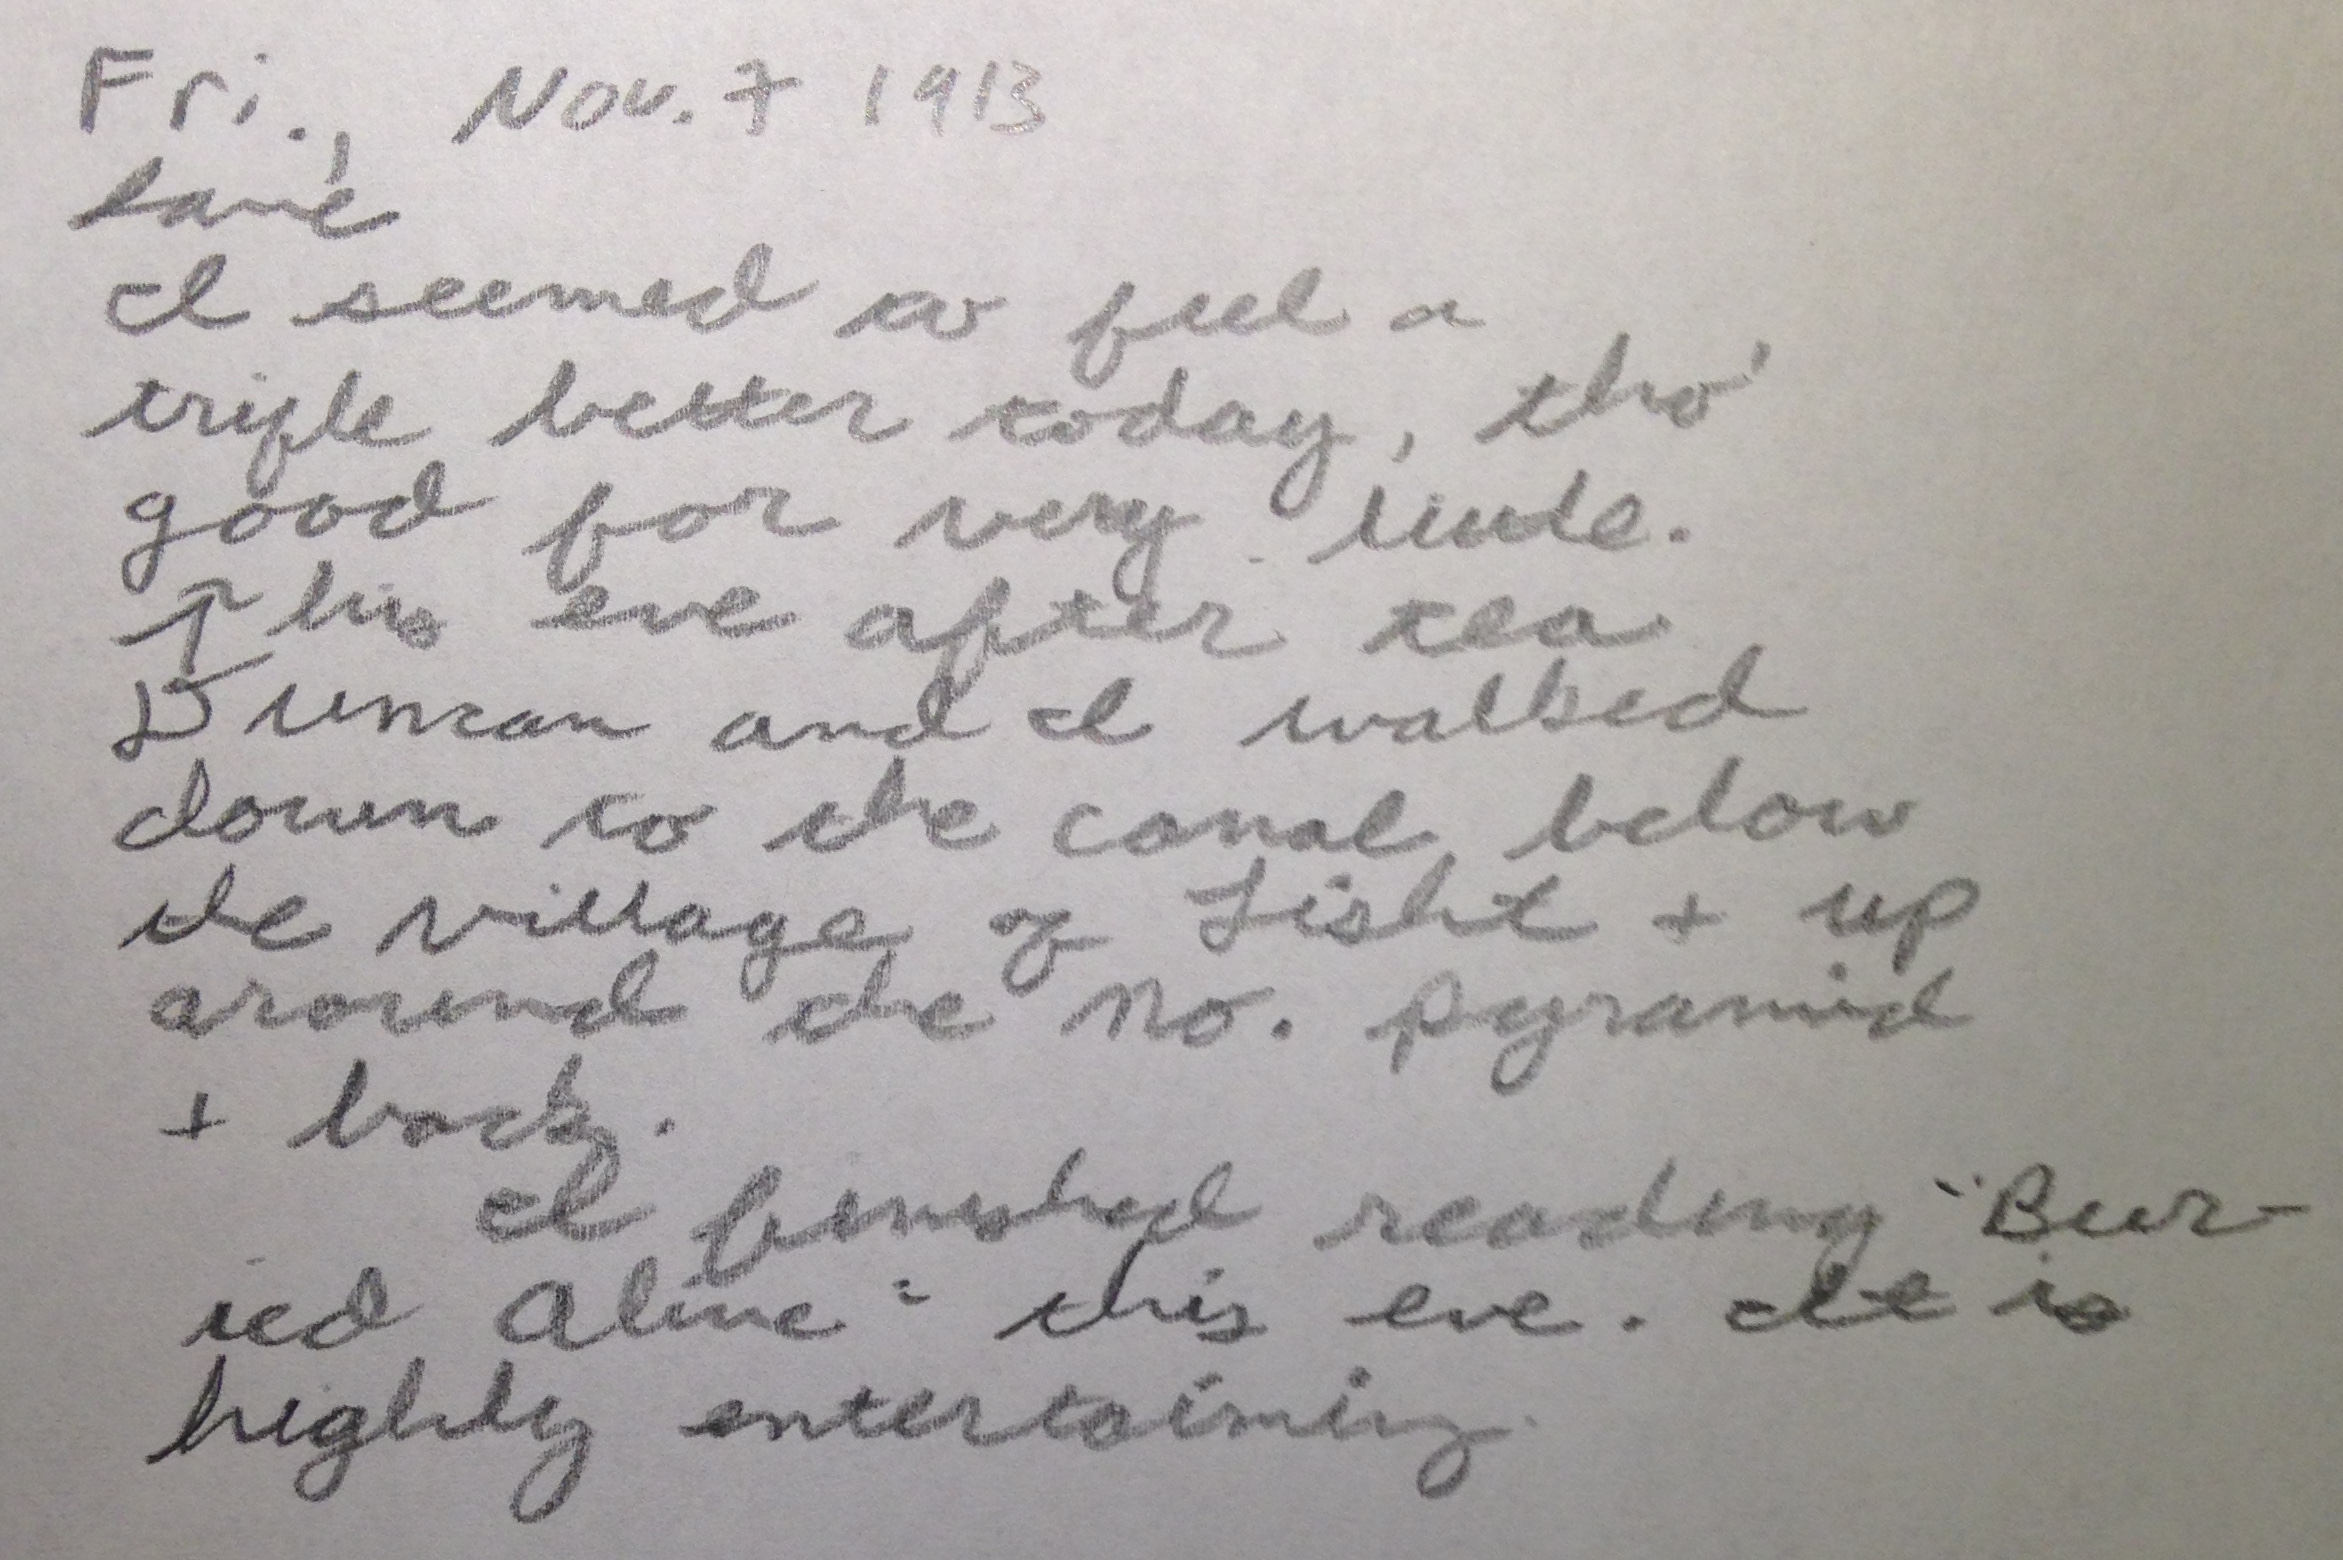 Fri., Nov. 7 1913
I seemed to feel a
trifle better today, tho'
good for very little.
This eve after tea
Duncan and I walked
down to the canal below
the village of Lisht + up
around the No. Pyramid
+ back.
I finished reading "Bur-
ied Alive" this eve. It is
highly entertaining.